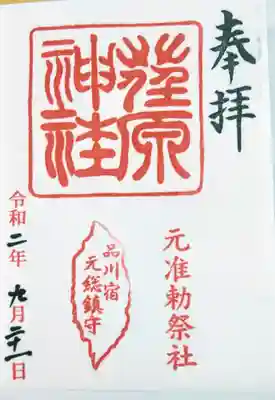 奉拝
元准勅祭社
荏原
神社
品川宿
元総鎮守
令和二年九月二十一日